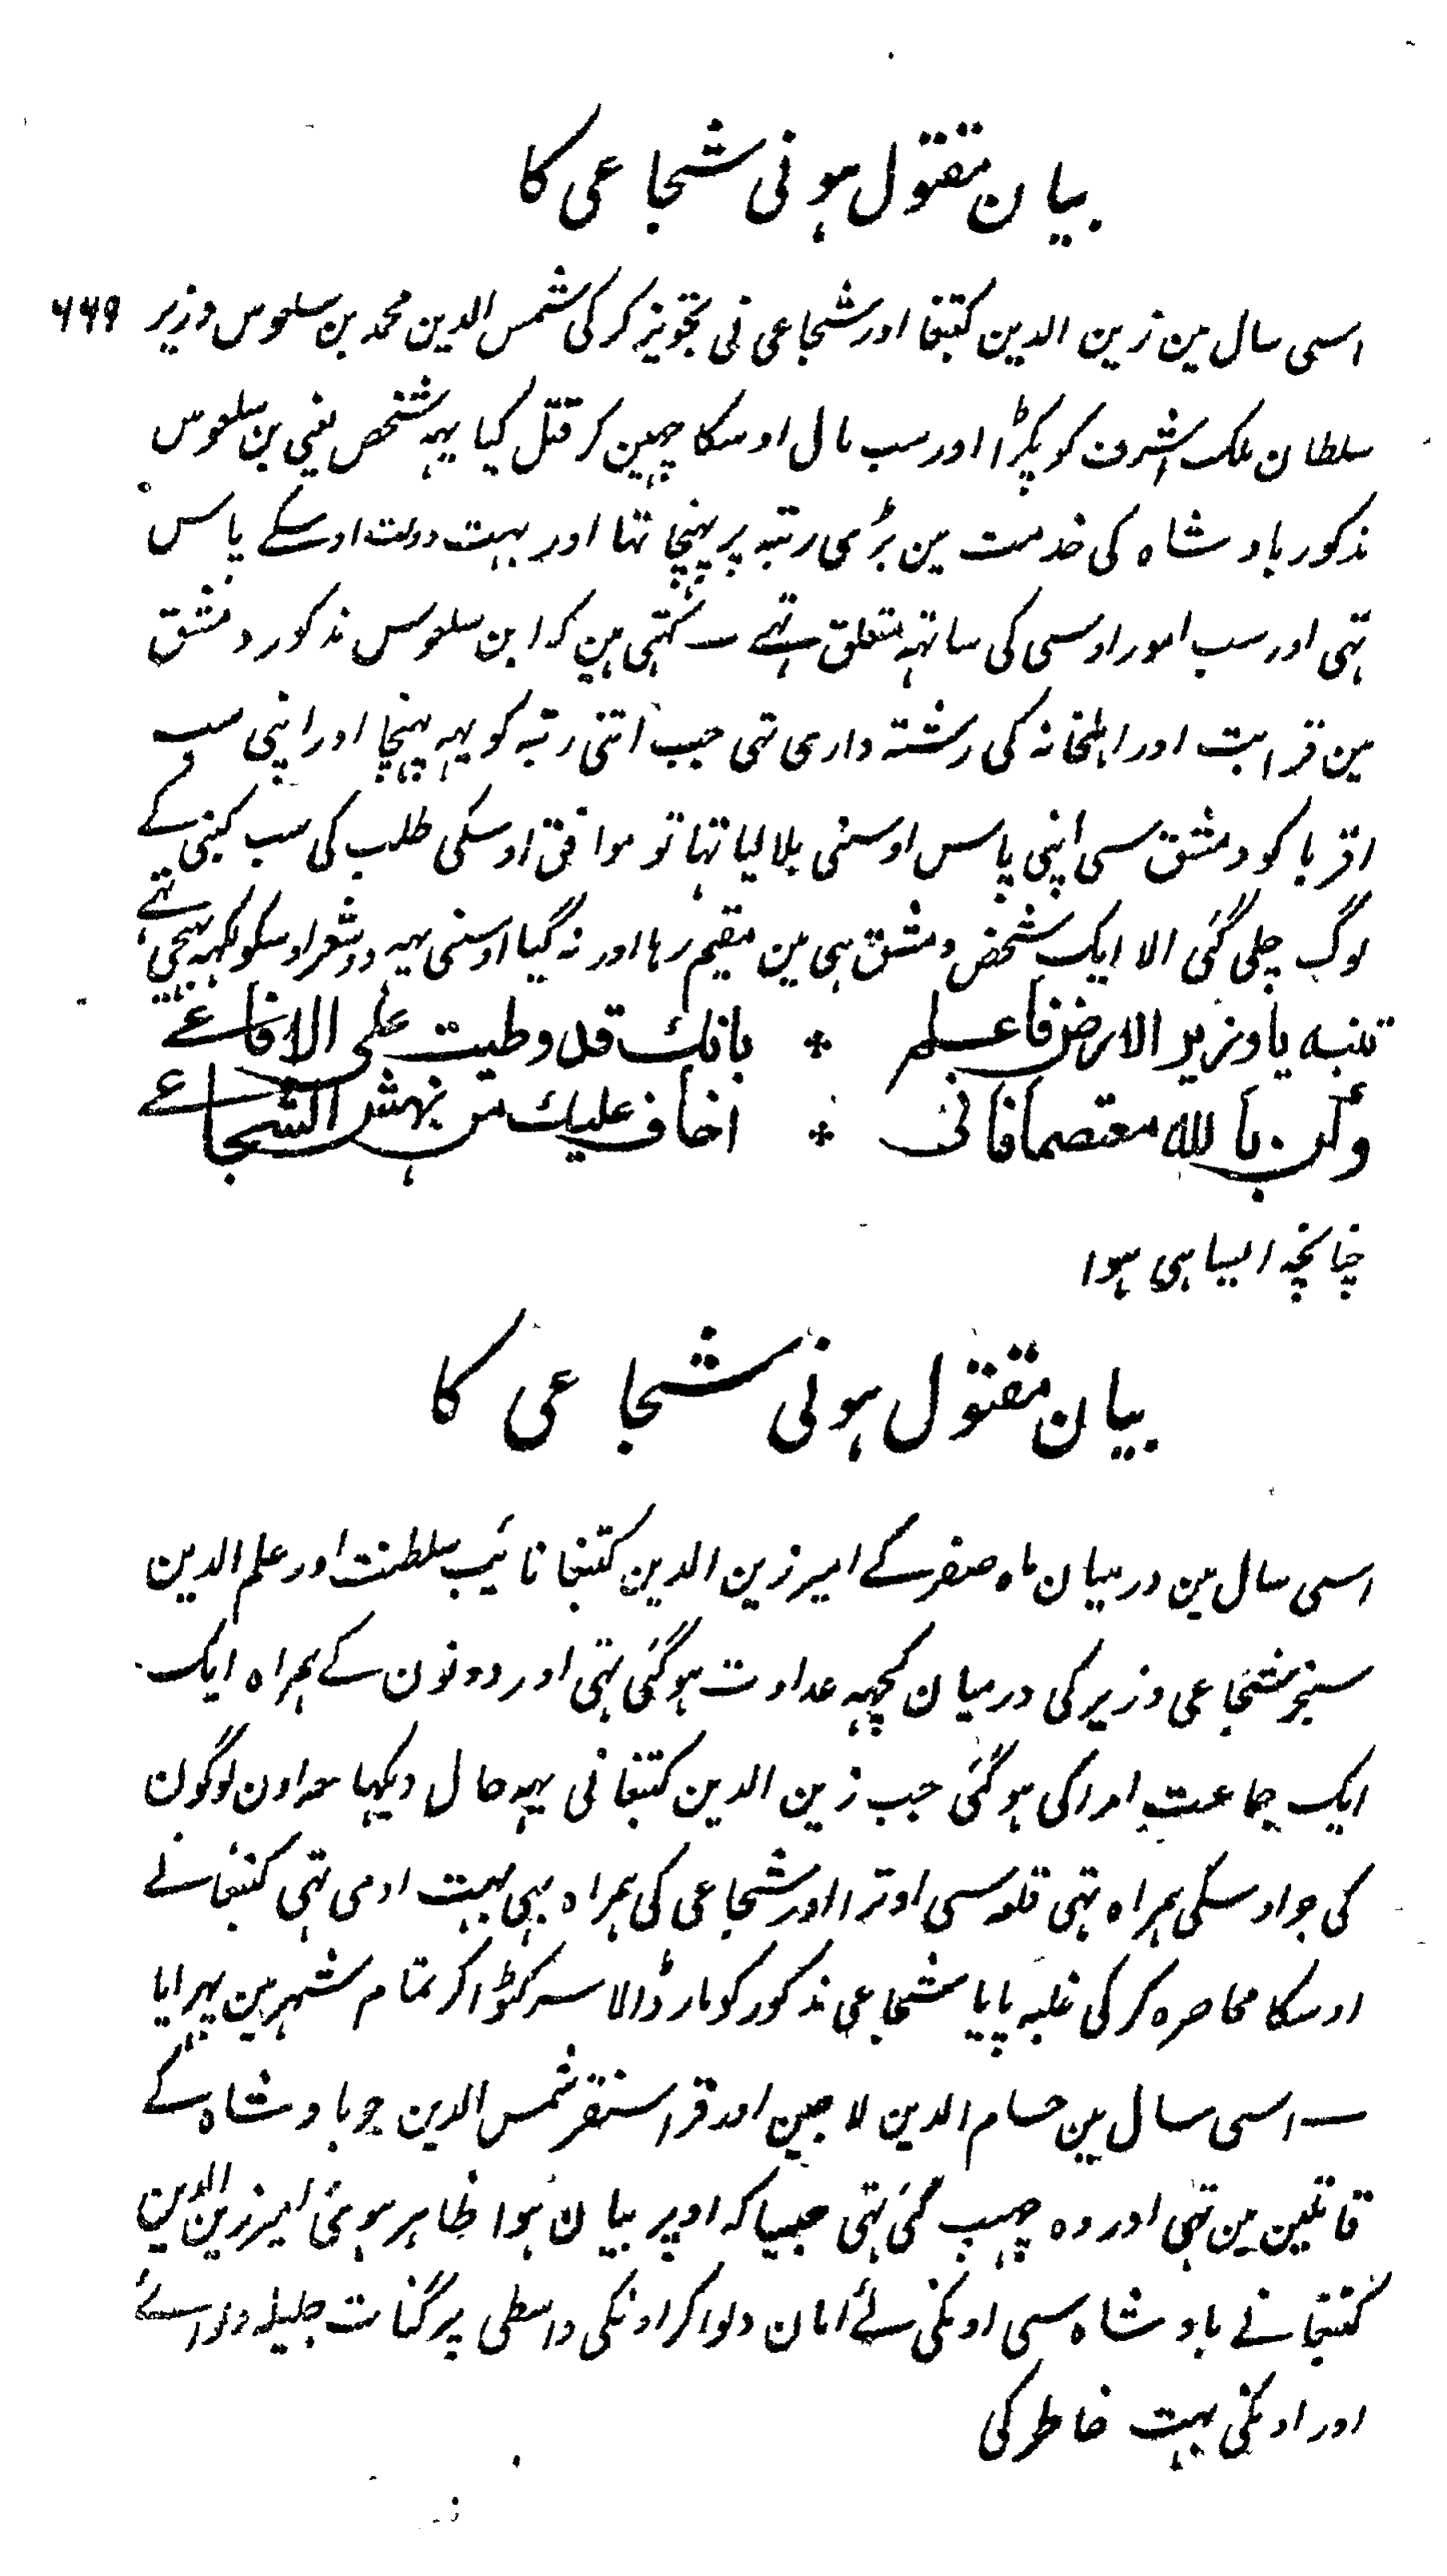 بیان مقتول ہونی شجاعی کا
اسی سال مین زین الدین کتبغا اور شجاعی نی تجویز کر کی شمس الدین محمد بن سلعوس وزیر ۶۶۹
سلطان ملک اشرف کو پکڑا اور سب مال اوسکا چہین کر قتل کیا یہہ شخص یعنی بن سلعوس
مذکور بادشاہ کی خدمت مین بڑی رتبہ پر پہنچا تہا اور بہت دولت اوسکے پاس
تہی اور سب امور اوسی کی ساتہہ متعلق تہے — کہتی ہین کہ ابن سلعوس مذکور دمشق
مین قرابت اور اہلخانہ کی رشتہ داری تہی جب اتنی رتبہ کو یہہ پہنچا اور اپنی سب
اقربا کو دمشق سی اپنی پاس اوسنی بلا لیا تہا تو موافق اوسکی طلب کی سب کنبی کے
لوگ چلی گئی الا ایک شخص دمشق ہی مین مقیم رہا اور نہ گیا اوسنی یہہ دو شعر اوسکو لکہہ بہیجی تہے
تنبہ یا وزیر الارض فاعلم ٭ بانک قد وطیت علی الافاعے
وکن باللہ معتصما فانی ٭ اخاف علیک من نہش الشجاعے
چنانچہ ایسا ہی ہوا
بیان مقتول ہونی شجاعی کا
اسی سال مین درمیان ماہ صفر کے امیر زین الدین کتبغا نائیب سلطنت اور علم الدین
سنجر شجاعی وزیر کی درمیان کچہہ عداوت ہوگئی تہی اور دونون کے ہمراہ ایک
ایک جماعت امرا کی ہو گئی جب زین الدین کتبغا نی یہہ حال دیکہا معہ اون لوگون
کی جو اوسکی ہمراہ تہی قلعہ سی اوترا اور شجاعی کی ہمراہ بہی بہت ادمی تہی کتبغا نے
اوسکا محاصرہ کر کی غلبہ پایا شجاعی مذکور کو مار ڈالا سر کٹوا کر تمام شہر مین پہرایا
— اسی سال مین حسام الدین لاجین اور قراسنقر شمس الدین جو بادشاہ کے
قاتلین مین تہی اور وہ چہپ گئی تہی جیسا کہ اوپر بیان ہوا ظاہر ہوئی امیر زین الدین
کتبغا نے بادشاہ سی اونکی لئے امان دلوا کر اونکی واسطی پرگنات جلیلہ دلوائے
اور اونکی بہت خاطر کی